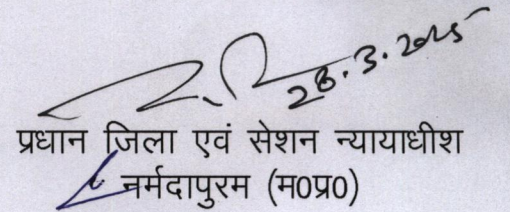 28.3.2025
प्रधान जिला एवं सेशन न्यायाधीश
नर्मदापुरम (म0प्र0)